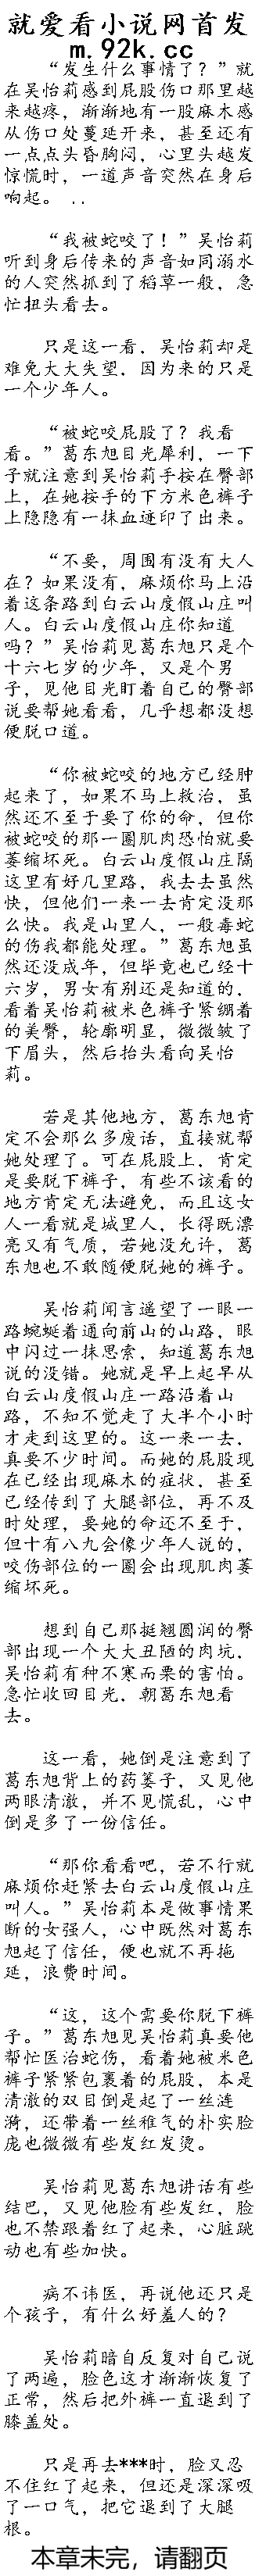 就爱看小说网首发
m.92k.cc
“发生什么事情了？”就
在吴怡莉感到屁股伤口那里越
来越疼，渐渐地有一股麻木感
从伤口处蔓延开来，甚至还有
一点点头昏胸闷，心里头越发
惊慌时，一道声音突然在身后
响起。 ..
“我被蛇咬了！”吴怡莉
听到身后传来的声音如同溺水
的人突然抓到了稻草一般，急
忙扭头看去。
只是这一看，吴怡莉却是
难免大大失望，因为来的只是
一个少年人。
“被蛇咬屁股了？我看
看。”葛东旭目光犀利，一下
子就注意到吴怡莉手按在臀部
上，在她按手的下方米色裤子
上隐隐有一抹血迹印了出来。
“不要，周围有没有大人
在？如果没有，麻烦你马上沿
着这条路到白云山度假山庄叫
人。白云山度假山庄你知道
吗？”吴怡莉见葛东旭只是个
十六七岁的少年，又是个男
子，见他目光盯着自己的臀部
说要帮她看看，几乎想都没想
便脱口道。
“你被蛇咬的地方已经肿
起来了，如果不马上救治，虽
然还不至于要了你的命，但你
被蛇咬的那一圈肌肉恐怕就要
萎缩坏死。白云山度假山庄隔
这里有好几里路，我去去虽然
快，但他们一来一去肯定没那
么快。我是山里人，一般毒蛇
的伤我都能处理。”葛东旭虽
然还没成年，但毕竟也已经十
六岁，男女有别还是知道的，
看着吴怡莉被米色裤子紧绷着
的美臀，轮廓明显，微微皱了
下眉头，然后抬头看向吴怡
莉。
若是其他地方，葛东旭肯
定不会那么多废话，直接就帮
她处理了。可在屁股上，肯定
是要脱下裤子，有些不该看的
地方肯定无法避免，而且这女
人一看就是城里人，长得既漂
亮又有气质，若她没允许，葛
东旭也不敢随便脱她的裤子。
吴怡莉闻言遥望了一眼一
路蜿蜒着通向前山的山路，眼
中闪过一抹思索，知道葛东旭
说的没错。她就是早上起早从
白云山度假山庄一路沿着山
路，不知不觉走了大半个小时
才走到这里的。这一来一去，
真要不少时间。而她的屁股现
在已经出现麻木的症状，甚至
已经传到了大腿部位，再不及
时处理，要她的命还不至于，
但十有八九会像少年人说的，
咬伤部位的一圈会出现肌肉萎
缩坏死。
想到自己那挺翘圆润的臀
部出现一个大大丑陋的肉坑，
吴怡莉有种不寒而栗的害怕。
急忙收回目光，朝葛东旭看
去。
这一看，她倒是注意到了
葛东旭背上的药篓子，又见他
两眼清澈，并不见慌乱，心中
倒是多了一份信任。
“那你看看吧，若不行就
麻烦你赶紧去白云山度假山庄
叫人。”吴怡莉本是做事情果
断的女强人，心中既然对葛东
旭起了信任，便也就不再拖
延，浪费时间。
“这，这个需要你脱下裤
子。”葛东旭见吴怡莉真要他
帮忙医治蛇伤，看着她被米色
裤子紧紧包裹着的屁股，本是
清澈的双目倒是起了一丝涟
漪，还带着一丝稚气的朴实脸
庞也微微有些发红发烫。
吴怡莉见葛东旭讲话有些
结巴，又见他脸有些发红，脸
也不禁跟着红了起来，心脏跳
动也有些加快。
病不讳医，再说他还只是
个孩子，有什么好羞人的？
吴怡莉暗自反复对自己说
了两遍，脸色这才渐渐恢复了
正常，然后把外裤一直退到了
膝盖处。
只是再去***时，脸又忍
不住红了起来，但还是深深吸
了一口气，把它退到了大腿
根。
本章未完，请翻页